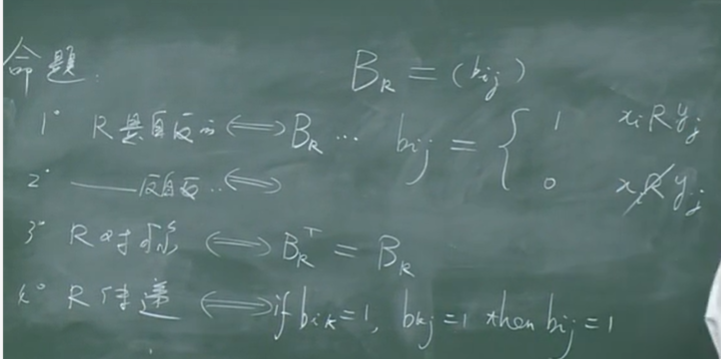 命题:
B_R = (b_ij)
1° R是自反的 ⟺ B_R ...
b_ij = { 1 x_i R y_j
0 x_i R̸ y_j
2° —— 反自反.. ⟺
3° R对称 ⟺ B_R^T = B_R
4° R传递 ⟺ if b_ik=1, b_kj=1 then b_ij=1